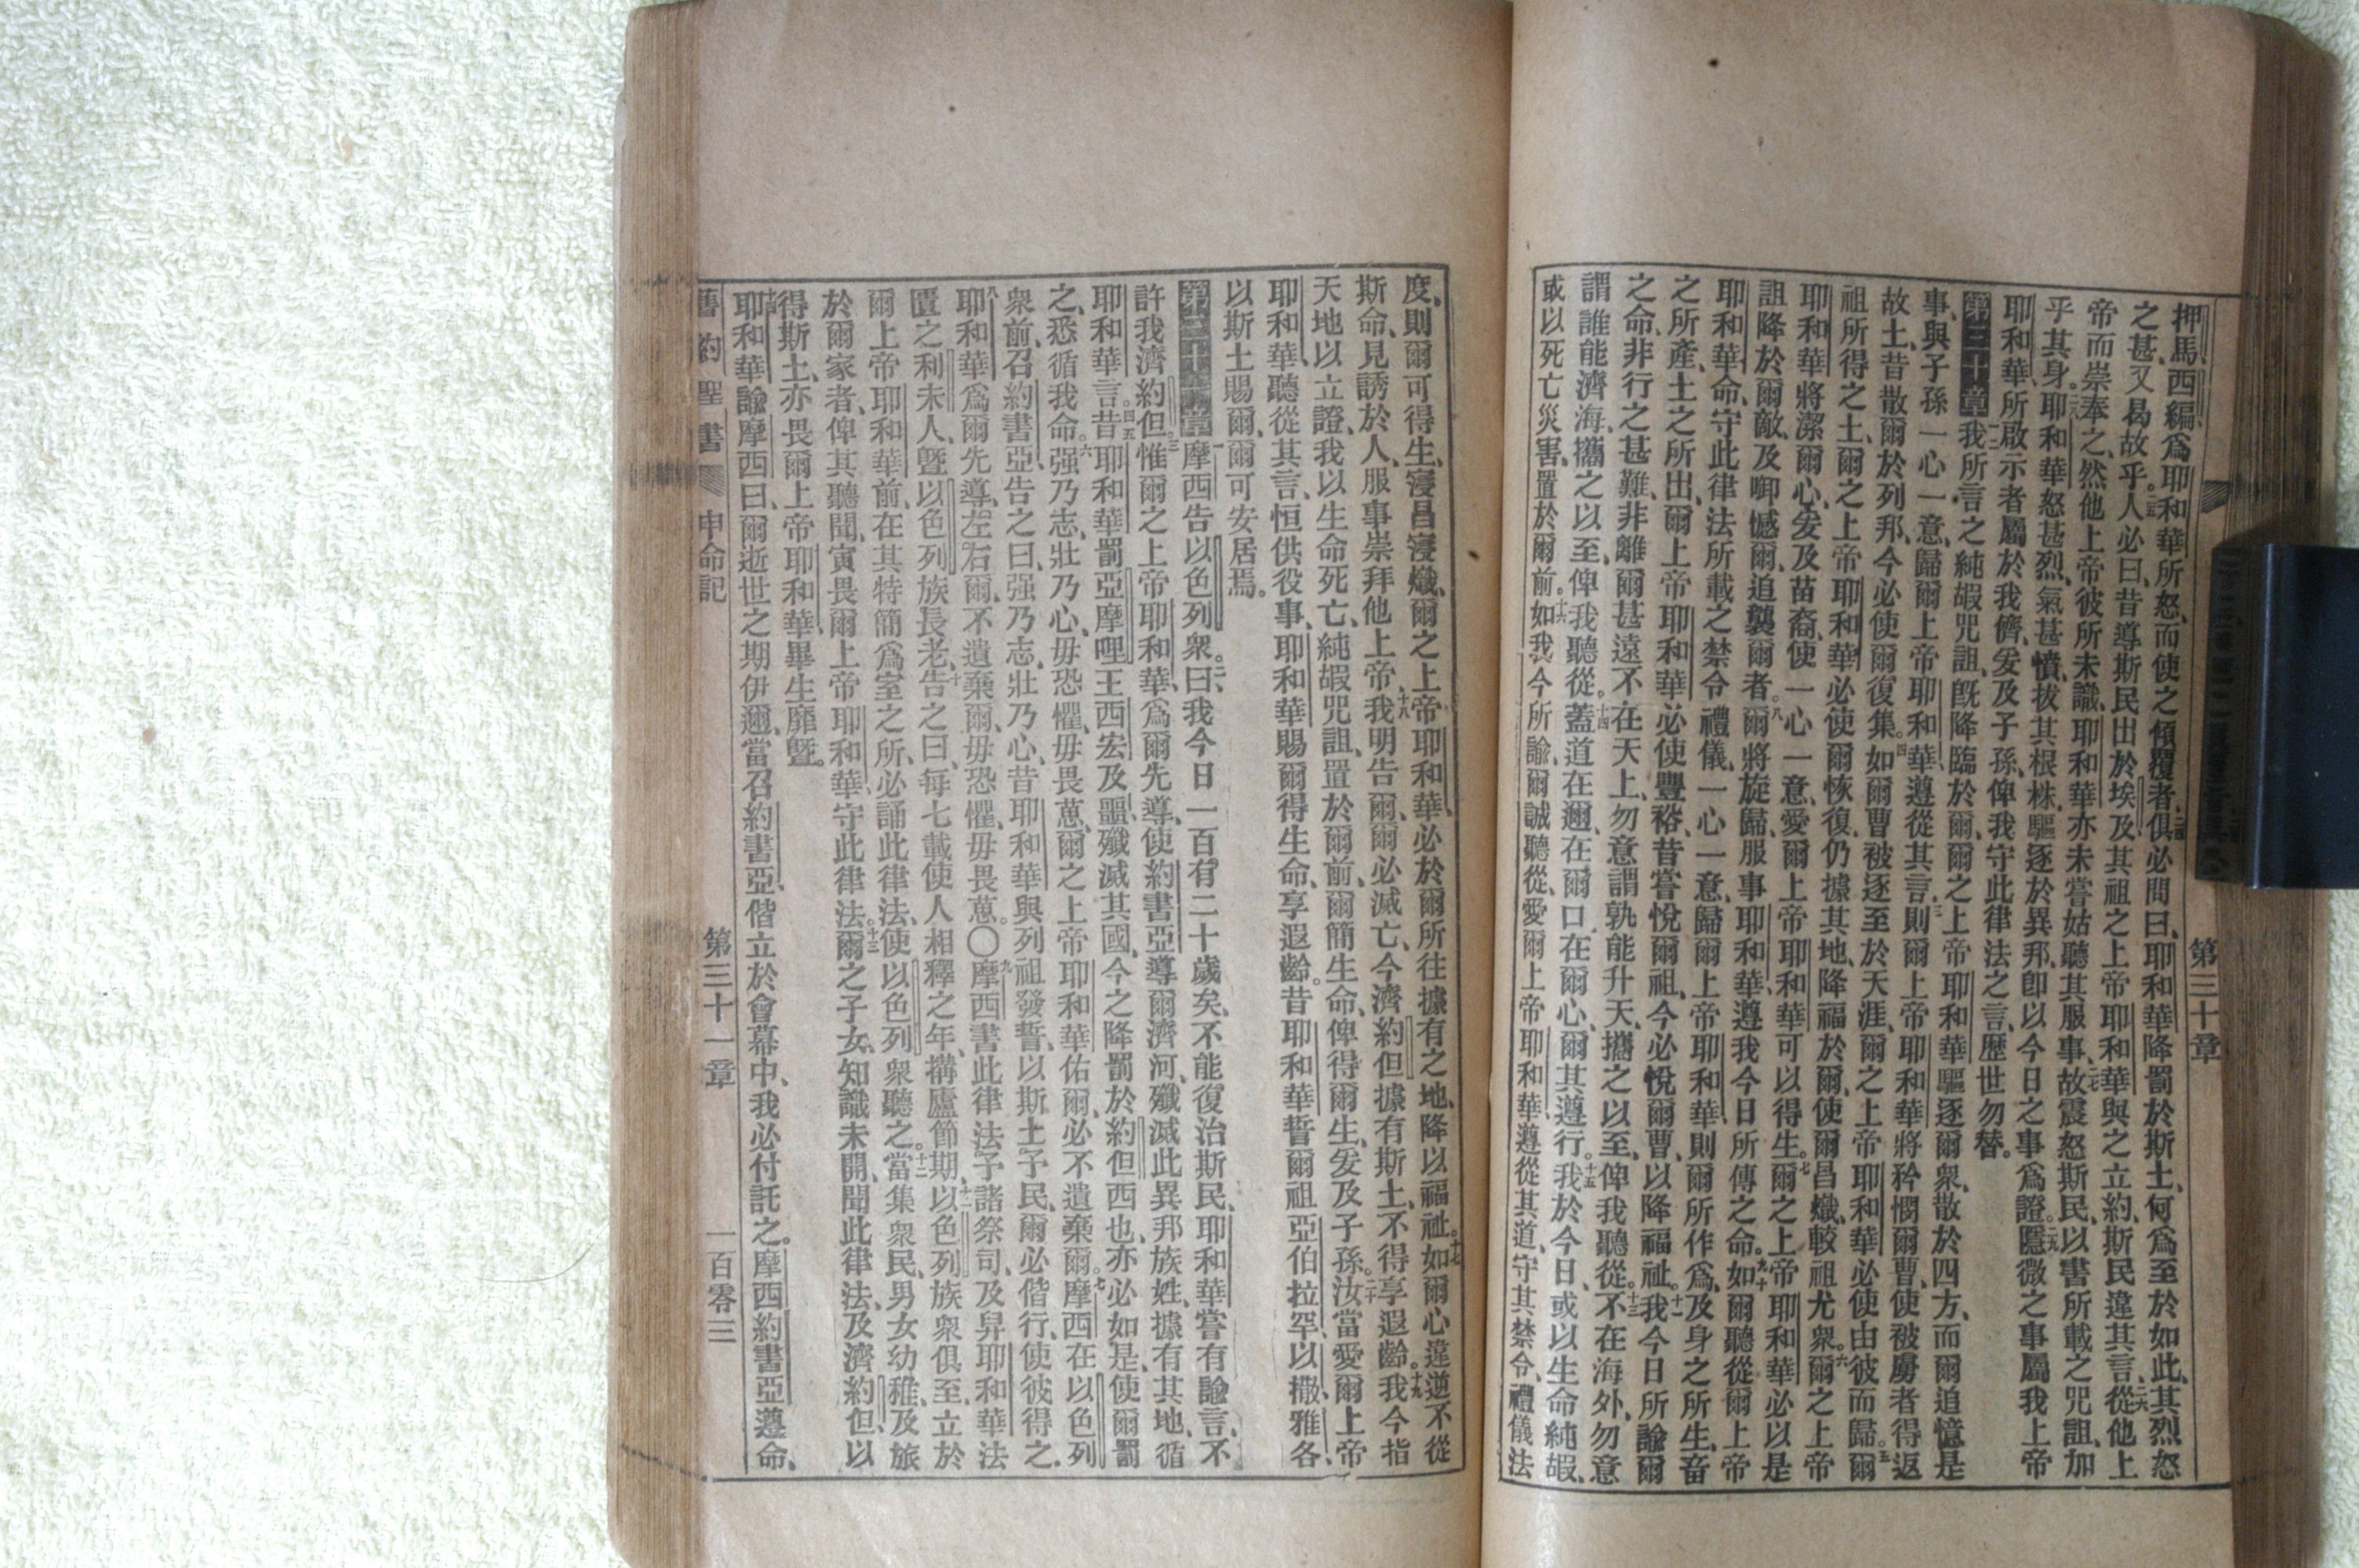 第三十章
押馬西編、爲耶和華所怒、而使之傾覆者、二四俱必問曰、耶和華降罰於斯土、何爲至於如此、其烈怒
之甚、又曷故乎。二五人必曰、昔導斯民出於埃及、其祖之上帝耶和華與之立約、斯民違其言、二六從他上
帝而崇奉之、然他上帝彼所未識、耶和華亦未嘗姑聽其服事、二七故震怒斯民、以書所載之咒詛、加
乎其身。二八耶和華怒甚烈、氣甚憤、拔其根株、驅逐於異邦、卽以今日之事爲證。二九隱微之事、屬我上帝
耶和華、所啟示者屬於我儕、爰及子孫、俾我守此律法之言、歷世勿替。
第三十章 一二我所言之純嘏咒詛、旣降臨於爾、爾之上帝耶和華驅逐爾衆、散於四方、而爾追憶是
事、與子孫一心一意、歸爾上帝耶和華、遵從其言、三則爾上帝耶和華將矜憫爾曹、使被虜者得返
故土、昔散爾於列邦、今必使爾復集。四如爾曹被逐至於天涯、爾之上帝耶和華必使由彼而歸。五爾
祖所得之土、爾之上帝耶和華必使爾恢復、仍據其地、降福於爾、使爾昌熾、較祖尤衆。六爾之上帝
耶和華將潔爾心、爰及苗裔、使一心一意、愛爾上帝耶和華、可以得生。七爾之上帝耶和華必以是
詛降於爾敵、及啣憾爾、追襲爾者。八爾將旋歸、服事耶和華、遵我今日所傳之命。九十如爾聽從爾上帝
耶和華命、守此律法所載之禁令禮儀、一心一意、歸爾上帝耶和華、則爾所作爲、及身之所生、畜
之所產、土之所出、爾上帝耶和華必使豐裕、昔嘗悅爾祖、今必悅爾曹、以降福祉。十一我今日所諭爾
之命、非行之甚難、非離爾甚遠、十二不在天上、勿意謂孰能升天、攜之以至、俾我聽從。十三不在海外、勿意
謂誰能濟海、攜之以至、俾我聽從。十四蓋道在邇、在爾口、在爾心、爾其遵行。十五我於今日、或以生命純嘏、
或以死亡災害、置於爾前。十六如我今所諭爾、誠聽從、愛爾上帝耶和華、遵從其道、守其禁令、禮儀法
度、則爾可得生、寖昌寖熾、爾之上帝耶和華、必於爾所往據有之地、降以福祉。十七如爾心違逆不從
斯命、見誘於人、服事崇拜他上帝、十八我明告爾、爾必滅亡、今濟約但據有斯土、不得享遐齡。十九我今指
天地以立證、我以生命死亡、純嘏咒詛、置於爾前、爾簡生命、俾得爾生、爰及子孫。二十汝當愛爾上帝
耶和華、聽從其言、恒供役事、耶和華賜爾得生命、享遐齡。昔耶和華誓爾祖亞伯拉罕、以撒、雅各、
以斯土賜爾、爾可安居焉。
第三十一章 一摩西告以色列衆。二曰、我今日一百有二十歲矣、不能復治斯民、耶和華嘗有諭言、不
許我濟約但。三惟爾之上帝耶和華、爲爾先導、使約書亞導爾濟河、殲滅此異邦族姓、據有其地、循
耶和華言。四五昔耶和華罰亞摩哩王西宏及噩、殲滅其國、今之降罰於約但西也、亦必如是、使爾罰
之、悉循我命。六强乃志、壯乃心、毋恐懼、毋畏葸、爾之上帝耶和華佑爾、必不遺棄爾。七摩西在以色列
衆前、召約書亞告之曰、强乃志、壯乃心、昔耶和華與列祖發誓、以斯土予民、爾必偕行、使彼得之、
八耶和華爲爾先導、左右爾、不遺棄爾、毋恐懼、毋畏葸。〇九摩西書此律法、予諸祭司、及舁耶和華法
匱之利未人、曁以色列族長老、十告之曰、每七載使人相釋之年、搆廬節期、十一以色列族衆俱至、立於
爾上帝耶和華前、在其特簡爲室之所、必誦此律法、使以色列衆聽之。十二當集衆民、男女幼穉、及旅
於爾家者、俾其聽聞、寅畏爾上帝耶和華、守此律法。十三爾之子女、知識未開、聞此律法、及濟約但、以
得斯土、亦畏爾上帝耶和華、畢生靡曁。
十四耶和華諭摩西曰、爾逝世之期伊邇、當召約書亞、偕立於會幕中、我必付託之。摩西約書亞遵命、
舊約聖書 申命記 第三十一章 一百零三